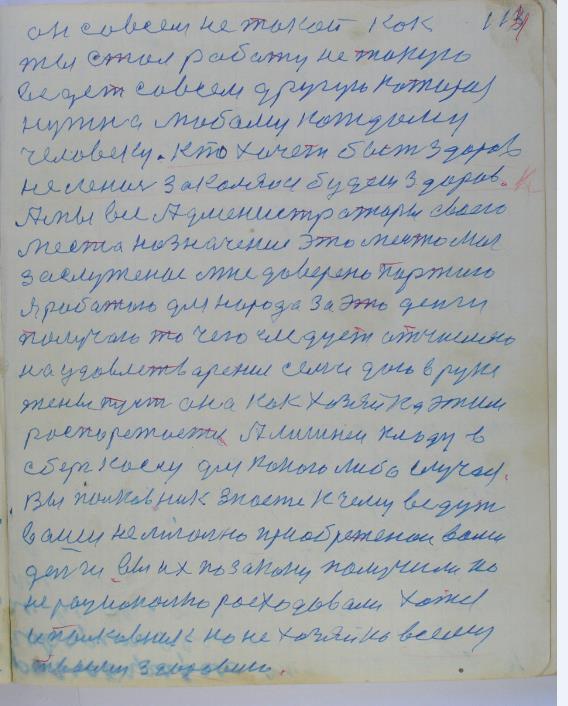 он совсем не такой как 113
ты стал работу не такую
ведет совсем другую которая
нужна любому каждому
человеку. Кто хочеть быть здоров
не ленис закаляйся будеш здоров.
А мы все Администраторы своего
места назначение это место мое
заслуженое мне доверено партию
я работаю для народа за это денги
получаю то чего следует отчисляю
на удовлетварение семи даю в руки
жены пуст она как хозяйка этим
роспорежается А лишнеи кладу в
сберкаску для какого либо случая.
Вы полковник знаете к чему ведут
ваши незаконно приобреженои вами
денги вы их позакону получили но
нерационално росходывали хотя
и полковник но не хозяйка всему
твоему здоровию.